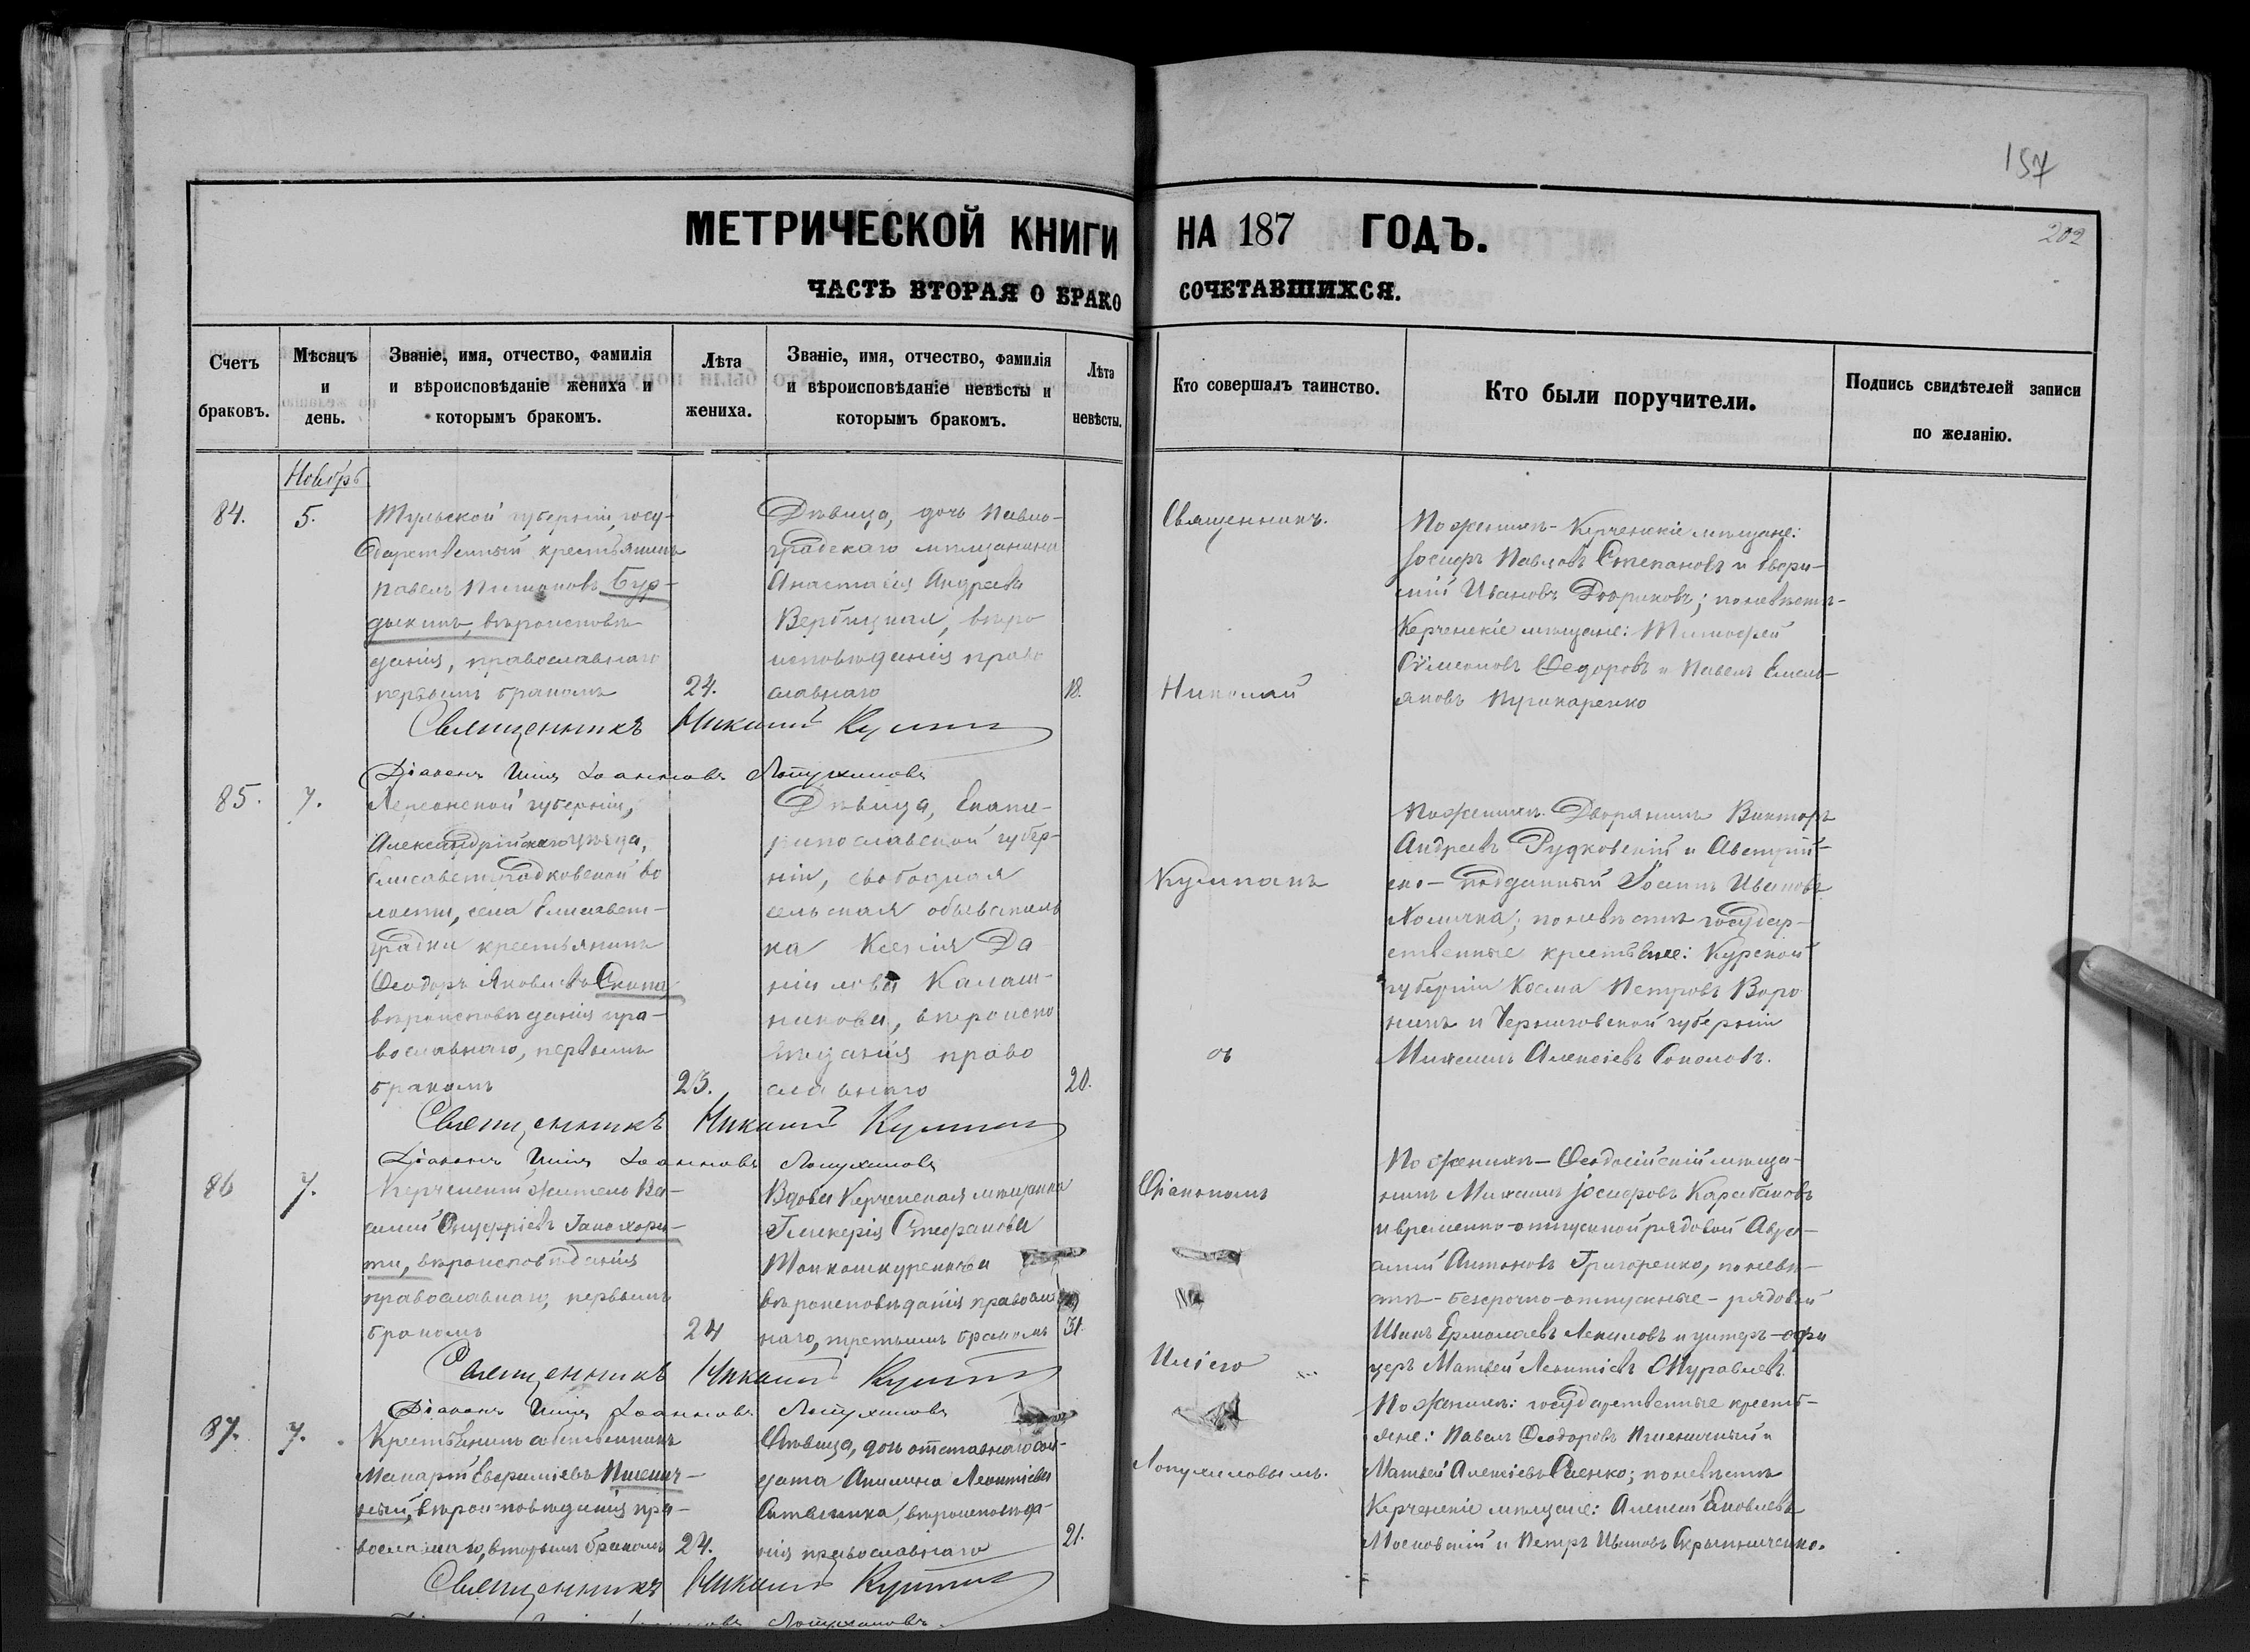 157
202
МЕТРИЧЕСКОЙ КНИГИ НА 187 ГОДЪ.
ЧАСТЬ ВТОРАЯ О БРАКО СОЧЕТАВШИХСЯ.
Счетъ браковъ.
Мѣсяцъ и день.
Званіе, имя, отчество, фамилія и вѣроисповѣданіе жениха и которымъ бракомъ.
Лѣта жениха.
Званіе, имя, отчество, фамилія и вѣроисповѣданіе невѣсты и которымъ бракомъ.
Лѣта невѣсты.
Кто совершалъ таинство.
Кто были поручители.
Подпись свидѣтелей записи по желанію.
Ноябрь
84.
5.
Тульской губерніи, госу-
дарственный крестьянинъ
Павелъ Бур-
дыкинъ, вѣроисповѣ-
данія, православнаго
первымъ бракомъ
24.
Дѣвица, дочь Павло-
градскаго мѣщанина
Анастасія Андреева
Вербицкая, вѣро
исповѣданія право
славнаго
18.
Священникъ
Николай
По женихѣ - Керченскіе мѣщане:
Іосифъ Павловъ Степановъ и
Ивановъ; по невѣстѣ -
Керченскіе мѣщане: Тимофей
Сѵмеоновъ Ѳедоровъ и Павелъ Емель-
яновъ
Священникъ Николай
Діаконъ Илія Іоанновъ Лопухиновъ
85.
7.
Херсонской губерніи,
Александрійскаго уѣзда,
Елисаветградковской во
лости, села Елисавет-
градки крестьянинъ
Ѳеодоръ Яковлевъ Скипа
вѣроисповѣданія пра-
вославнаго, первымъ
бракомъ
23.
Дѣвица, Екате-
ринославской губер-
ніи, свободная
сельская обыватель
ка Ксенія Да
ніилова Калаш-
никова, вѣроиспо
вѣданія право
славнаго
20.
По женихѣ Дворянинъ Викторъ
Андреевъ Рудковскій и Австрій-
ско-подданный Іоаннъ Ивановъ
; по невѣстѣ государ-
ственные крестьяне: Курской
губерніи Косма Петровъ Воро
нинъ и Черниговской губерніи
Михаилъ Алексіевъ Соколовъ.
съ
Священникъ Николай
Діаконъ Илія Іоанновъ Лопухиновъ
86
7.
Керченскій житель Ва-
силій Онуфріевъ
вѣроисповѣданія
православнаго, первымъ
бракомъ
24
Вдова Керченская мѣщанка
Гликерія Стефанова
Тонкошкуренкова
вѣроисповѣданія православ
наго, третьимъ бракомъ
31.
Діакономъ
Иліею
Лопухиновымъ.
По женихѣ - Ѳеодосійскій мѣща-
нинъ Михаилъ Іосифовъ Карабановъ
и временно-отпускной рядовой
Антоновъ Григоренко, по невѣ-
стѣ - безсрочно-отпускные - рядовой
Иванъ Ермолаевъ и унтеръ-офи
церъ Матвей Леонтіевъ Журавлевъ.
Священникъ Николай
Діаконъ Илія Іоанновъ Лопухиновъ
87.
7.
Крестьянинъ собственникъ
Макарій Евфиміевъ Пшенич-
ный, вѣроисповѣданія пра-
вославнаго, вторымъ бракомъ
24.
Дѣвица, дочь отставнаго сол-
дата Акилина Леонтіева
вѣроисповѣда-
нія православнаго
21.
По женихѣ: государственные кресть-
яне: Павелъ Ѳеодоровъ Пшеничный и
Матвей Алексіевъ; по невѣстѣ
Керченскіе мѣщане: Алексей Яковлевъ
Московскій и Петръ Ивановъ Скрыпниченко.
Священникъ Николай
Лопухиновъ.